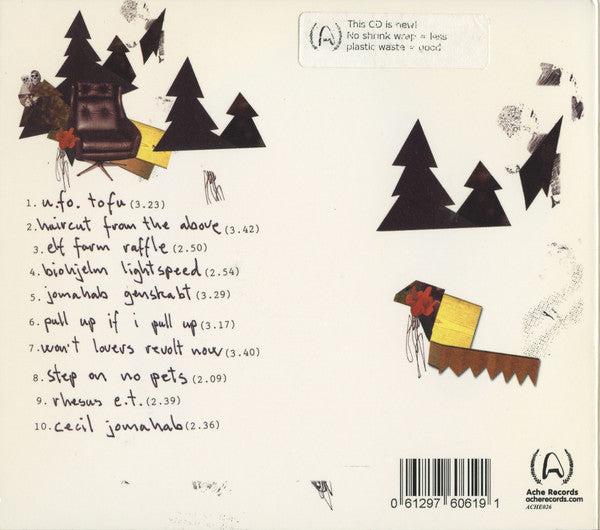 This CD is new!
No shrink wrap = less
plastic waste = good
1. u.f.o. tofu (3.23)
2. haircut from the above (3.42)
3. elf farm raffle (2.50)
4. biohjelm lightspeed (2.54)
5. jomahab genskabt (3.29)
6. pull up if i pull up (3.17)
7. won't lovers revolt now (3.40)
8. step on no pets (2.09)
9. rhesus e.t. (2.39)
10. cecil jomahab (2.36)
0 61297 60619 1
Ache Records
acherecords.com
ACHE026